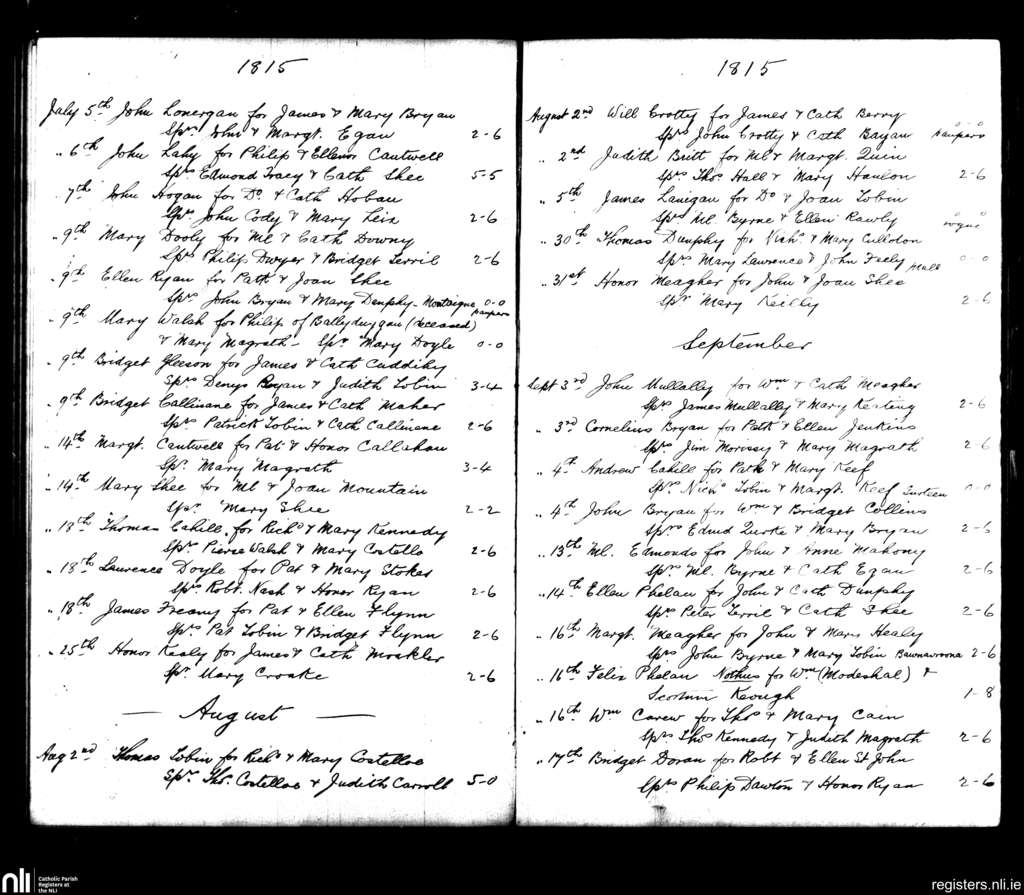 1815
July 5th John Lonergan for James & Mary Bryan
Sprs John & Margt. Egan 2-6
" 6th John Lahy for Philip & Ellenor Cantwell
Sprs Edmond Tracy & Cath Shee 5-5
7th John Hogan for Do. & Cath Hoban
Sprs John Cody & Mary 2-6
" 9th Mary Dooly for Ml & Cath Downy
Sprs Philip Dwyer & Bridget Terril 2-6
" 9th Ellen Ryan for Patk & Joan Shee
Sprs John Bryan & Mary Dunphy - Montaigne paupers 0-0
" 9th Mary Walsh for Philip of Ballyduggan (deceased)
& Mary Magrath - Spr. Mary Doyle 0-0
" 9th Bridget Gleeson for James & Cath Cuddihy
Sprs Denys Bryan & Judith Tobin 3-4
" 9th Bridget Callinane for James & Cath Maher
Sprs Patrick Tobin & Cath Callinene 2-6
" 14th Margt. Cantwell for Pat & Honor Callahan
Spr. Mary Magrath 3-4
" 14th Mary Shee for Ml & Joan Mountain
Spr. Mary Shee 2-2
" 18th Thomas Cahill for Richd & Mary Kennedy
Sprs Pierse Walsh & Mary Costello 2-6
" 18th Laurence Doyle for Pat & Mary Stokes
Sprs Robt. Nash & Honor Ryan 2-6
" 18th James Freany for Pat & Ellen Flynn
Sprs Pat Tobin & Bridget Flynn 2-6
" 25th Honor Kealy for James & Cath Mockler
Spr. Mary Croake 2-6
— August —
Aug 2nd Thomas Tobin for Richd & Mary Costelloe
Spr. Thos. Costelloe & Judith Carroll 5-0
1815
August 2nd Will Crotty for James & Cath Berry 0-0
Sprs John Crotty & Cath Bagan paupers
" 2nd Judith Britt for Ml & Margt. Quin
Sprs Thos Hall & Mary Hanlon 2-6
" 5th James Lanigan for Do & Joan Tobin
Sprs Ml. Byrne & Ellen Rawly 0-0
" 30th Thomas Dunphy for Nichs. & Mary
Sprs Mary Lawrence & John Feely 0-0
" 31st Honor Meagher for John & Joan Shee
Spr Mary Reilly 2-6
September
Sept 3rd John Mullally for Wm & Cath Meagher
Sprs James Mullally & Mary Keating 2-6
" 3rd Cornelius Bryan for Patk & Ellen Jenkins
Sprs Jim Morissy & Mary Magrath 2-6
" 4th Andrew Cahill for Patk & Mary Keef
Sprs Nichs Tobin & Margt. Keef 0-0
" 4th John Bryan for Wm & Bridget Collins
Sprs Edmd Burke & Mary Bryan 2-6
" 13th Ml. Edmonds for John & Anne Mahony
Sprs Ml. Byrne & Cath Egan 2-6
" 14th Ellen Phelan for John & Cath Dunphy
Sprs Peter Terril & Cath Shee 2-6
" 16th Margt. Meagher for John & Mary Healy
Sprs John Byrne & Mary Tobin Bawnavrona 2-6
" 16th Felix Phelan Nothus for Wm (Modeshal) &
Keough 1-8
" 16th Wm Carew for Thos & Mary Cain
Sprs Thos Kennedy & Judith Magrath 2-6
" 17th Bridget Doran for Robt & Ellen St John
Sprs Philip Dawton & Honor Ryan 2-6
nli
Catholic Parish
Registers at
the NLI
registers.nli.ie